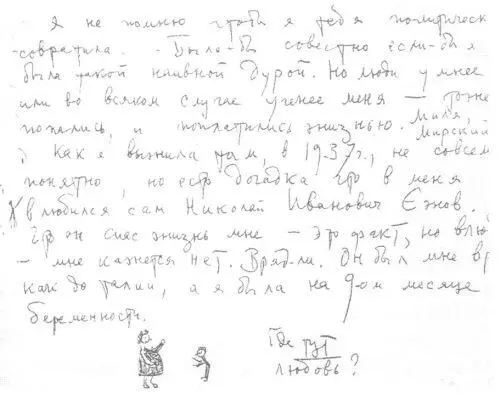 Я не помню чтобы я тебя политическ
-совратила. - Было-бы совестно если-бы я
была такой наивной дурой. Но люди умнее
или во всяком случае ученее меня — тоже
попались, и поплатились жизнью. Миля,
Мирский
Как я выжила там, в 1937г., не совсем
понятно, но есть догадка что в меня
влюбился сам Николай Иванович Ежов.
Что он спас жизнь мне - это факт, но влю
- мне кажется нет. Вряд-ли. Он был мне вр
как до талии, а я была на 9ом месяце
беременности.
Где тут
любовь?